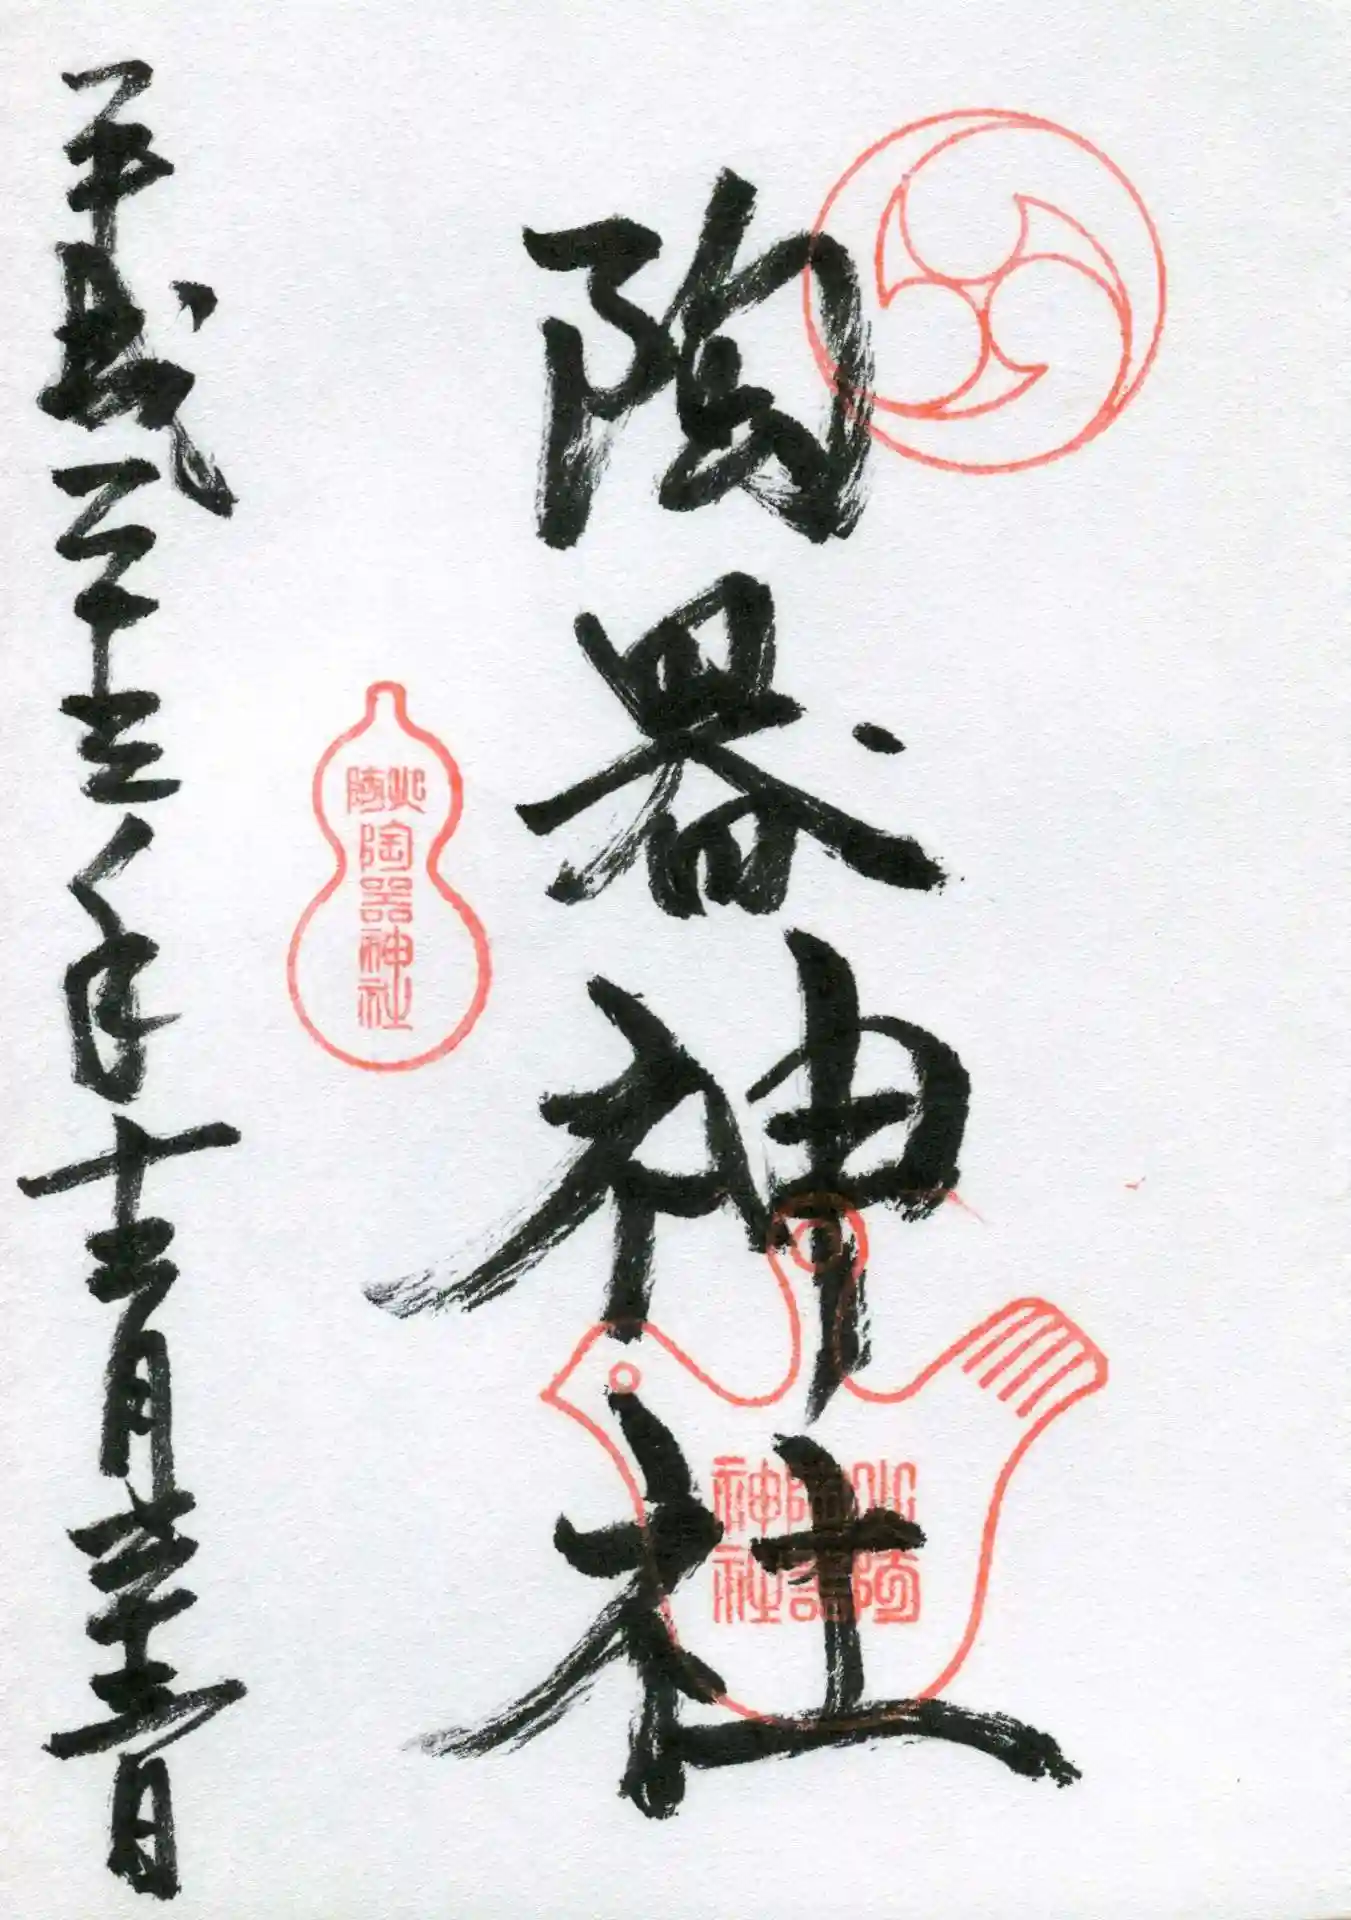 陶器神社
火防
陶器
神社
火防
陶器神社
平成二十三年十二月二十三日